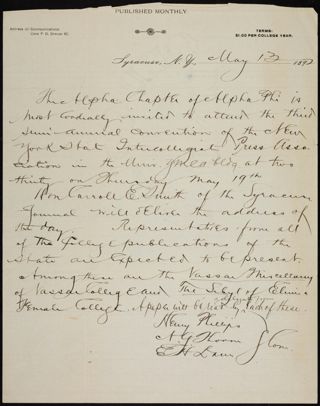 PUBLISHED MONTHLY
Address all Communications
TERMS:
$1.00 PER COLLEGE YEAR.
Syracuse, N.Y. May 13 1892
The Alpha Chapter of Alpha Phi is
most cordially invited to attend the third
semi-annual convention of the New
York State Intercollegiate Press Asso-
ciation in the Univ. YMCA bldg at two
thirty on Thursday May 19th
Hon Carroll E. Smith of the Syracuse
Journal will deliver the address of
the day. Representatives from all
of the College publications of the
State are expected to be present.
Among them are the Vassar Miscellany
of Vassar College and The Sibyl of Elmira
Female College. A paper will be read by each of these.
Henry Phillips
Com.